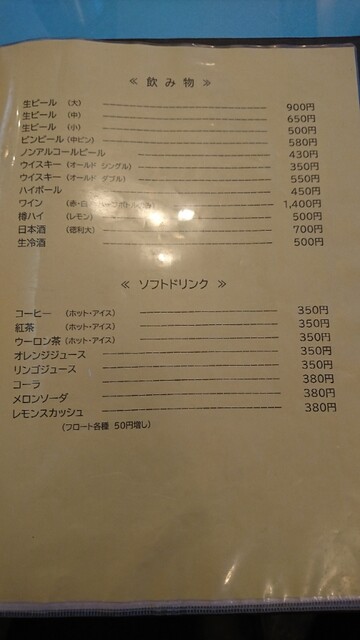 ≪ 飲み物 ≫
生ビール (大) 900円
生ビール (中) 650円
生ビール (小) 500円
ビンビール(中ビン) 580円
ノンアルコールビール 430円
ウイスキー(オールド シングル) 350円
ウイスキー(オールド ダブル) 550円
ハイボール 450円
ワイン (赤・白 1,400円
樽ハイ (レモン) 500円
日本酒 (徳利大) 700円
生冷酒 500円
≪ ソフトドリンク ≫
コーヒー (ホット・アイス) 350円
紅茶 (ホット・アイス) 350円
ウーロン茶(ホット・アイス) 350円
オレンジジュース 350円
リンゴジュース 350円
コーラ 380円
メロンソーダ 380円
レモンスカッシュ 380円
(フロート各種 50円増し)